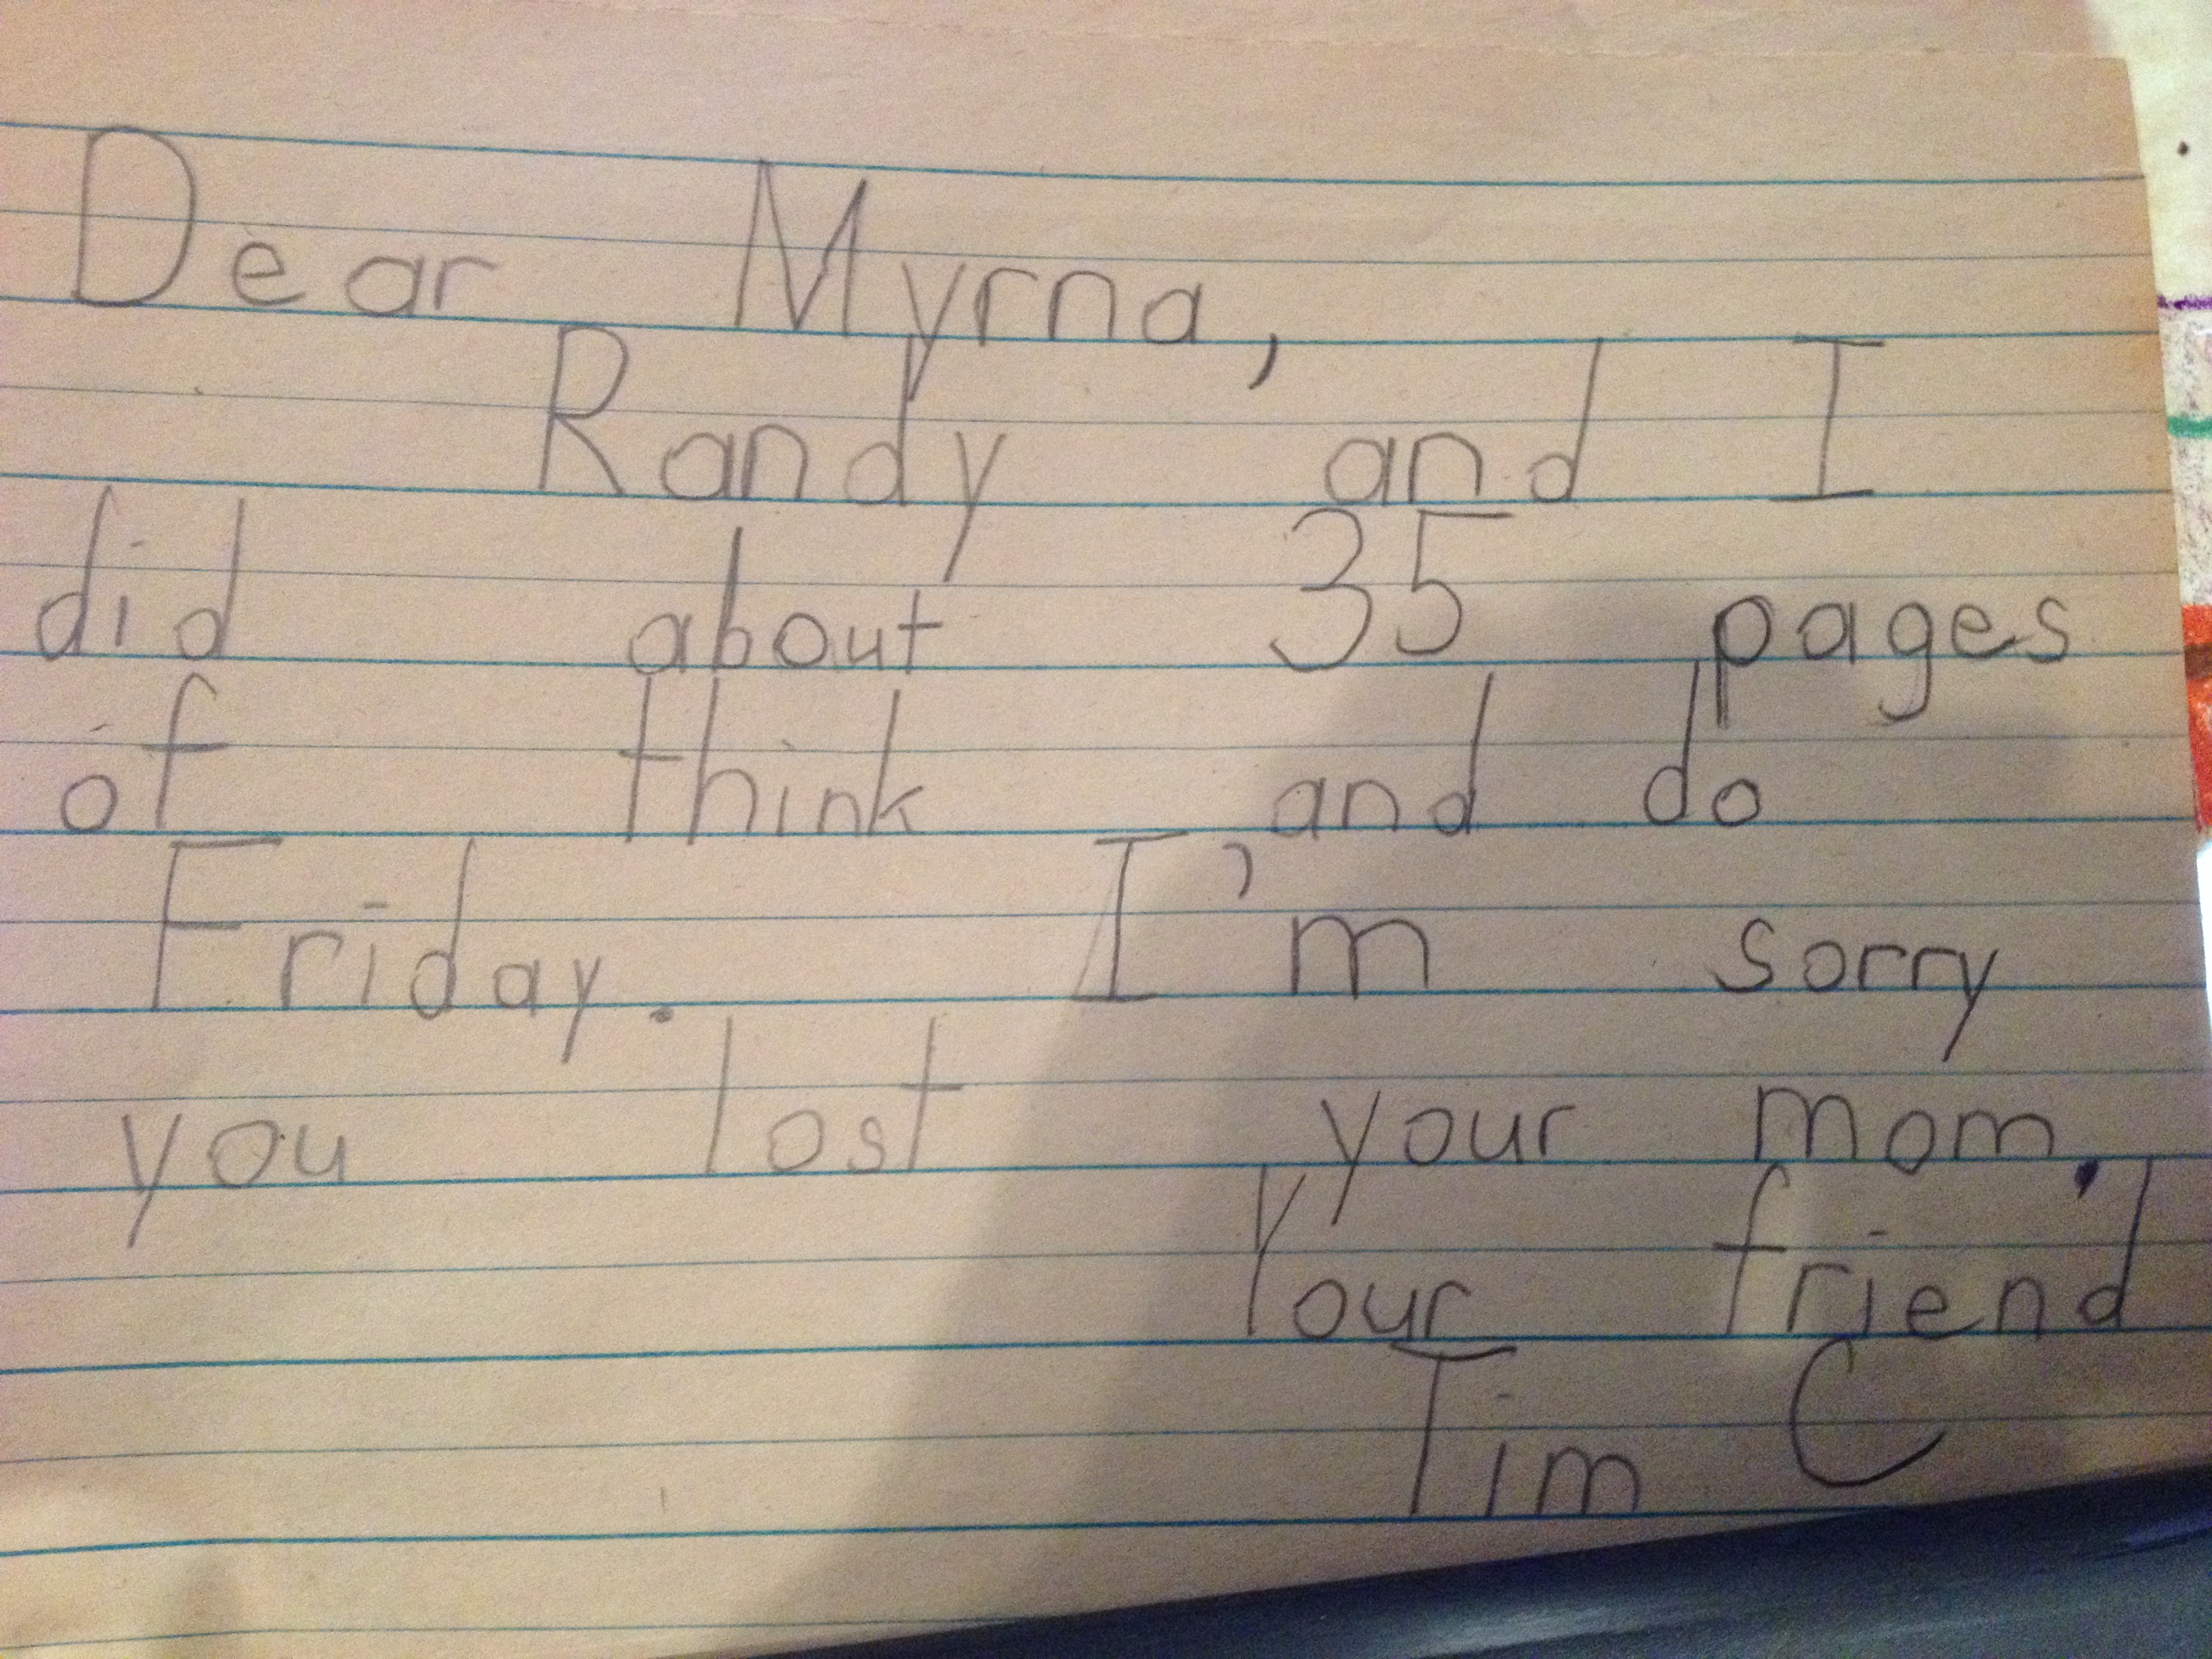 Dear Myrna,
Randy and I
did about 35 pages
of think and do
Friday. I'm sorry
you lost your mom.
Your friend
Tim C